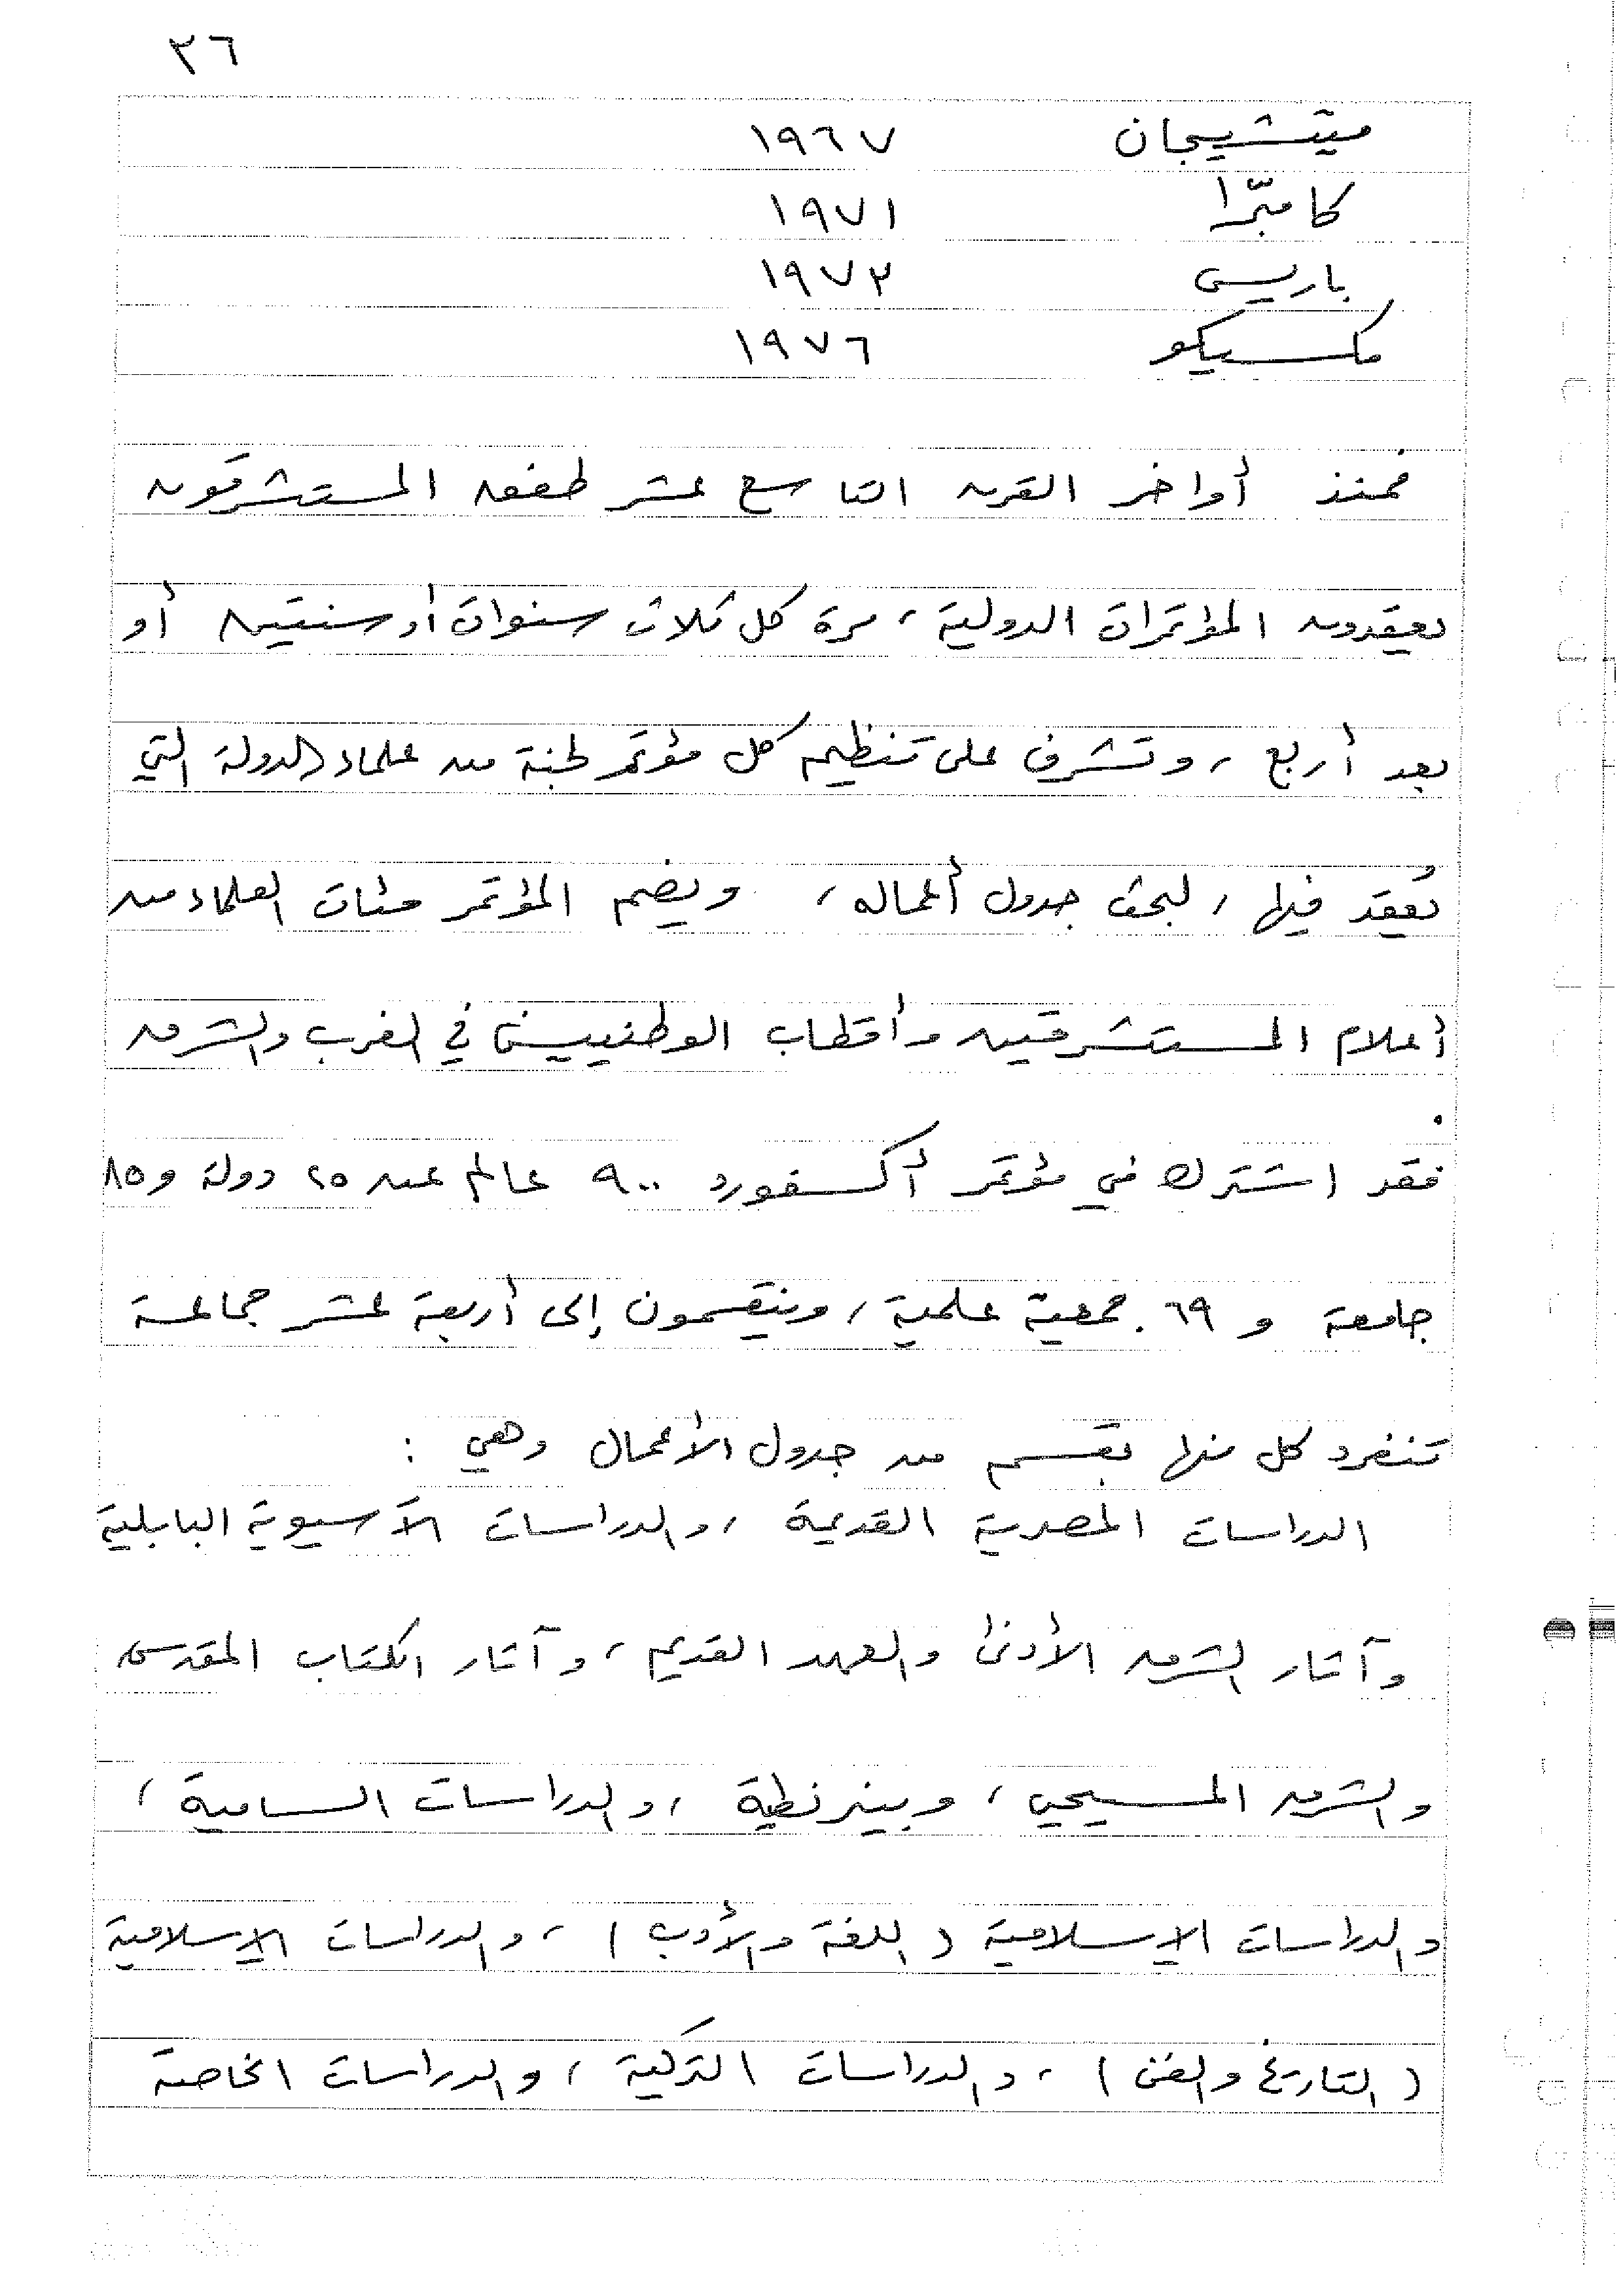 ٣٦
ميتشيجان ١٩٦٧
كامبرّا ١٩٧١
باريس ١٩٧٣
مكسيكو ١٩٧٦
فمنذ أواخر القرن التاسع عشر طفق المستشرقون
يعقدون المؤتمرات الدولية، مرة كل ثلاث سنوات أو سنتين أو
بعد أربع، وتشرف على تنظيم كل مؤتمر لجنة من علماء الدولة التي
يُعقد فيها، لبحث جدول أعماله، ويضم المؤتمر مئات العلماء من
أعلام المستشرقين وأقطاب الوطنيين في الغرب والشرق
.
فقد اشترك في مؤتمر أكسفورد ٩٠٠ عالم عن ٢٥ دولة و٨٥
جامعة و ٦٩ جمعية علمية، وينقسمون إلى أربعة عشر جماعة
تنفرد كل منها بقسم من جدول الأعمال وهي :
الدراسات المصرية القديمة، والدراسات الآسيوية البابلية
وآثار الشرق الأدنى والعهد القديم، وآثار الكتاب المقدس
والشرق المسيحي، وبيزنطية، والدراسات السامية،
والدراسات الإسلامية (اللغة والأدب)، والدراسات الإسلامية
(التاريخ والفن)، والدراسات التركية، والدراسات الخاصة